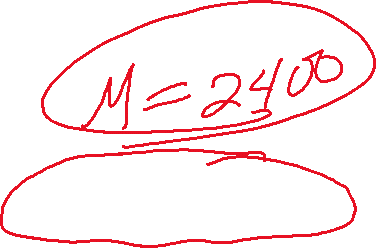 M = 2400